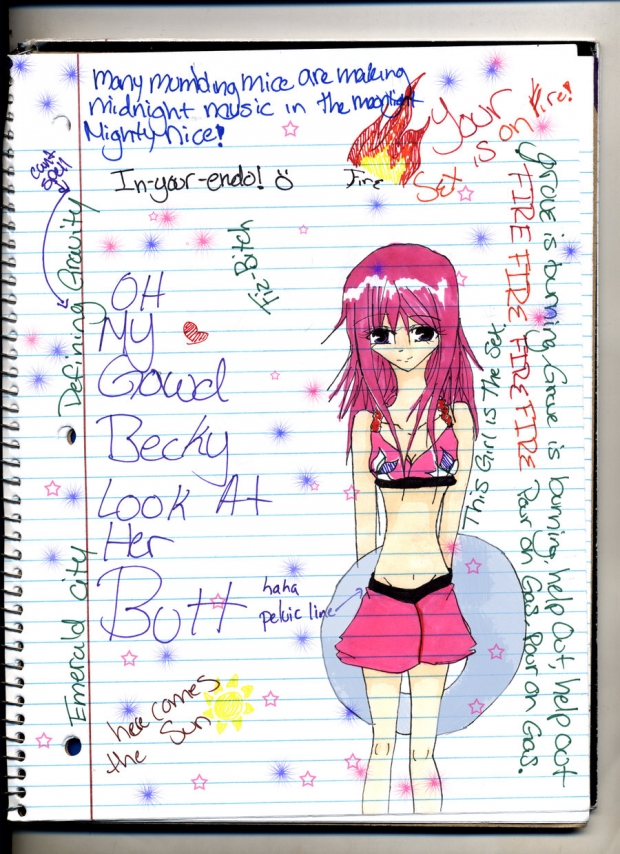 Many mumbling mice are making
midnight music in the moonlight
Mighty nice!
Your
Set is on Fire!
Fire
In-your-endo!
can't
spell
Defining Gravity
Tiz-Bitch
OH
MY
Gowd
Becky
Look At
Her
Butt
haha
pelvic line
Emerald City
here comes
the Sun
This Girl is The Set.
FIRE FIRE FIRE FIRE
Grove is burning, Grove is burning, help Out, help out
Pour on Gas. Pour on Gas.